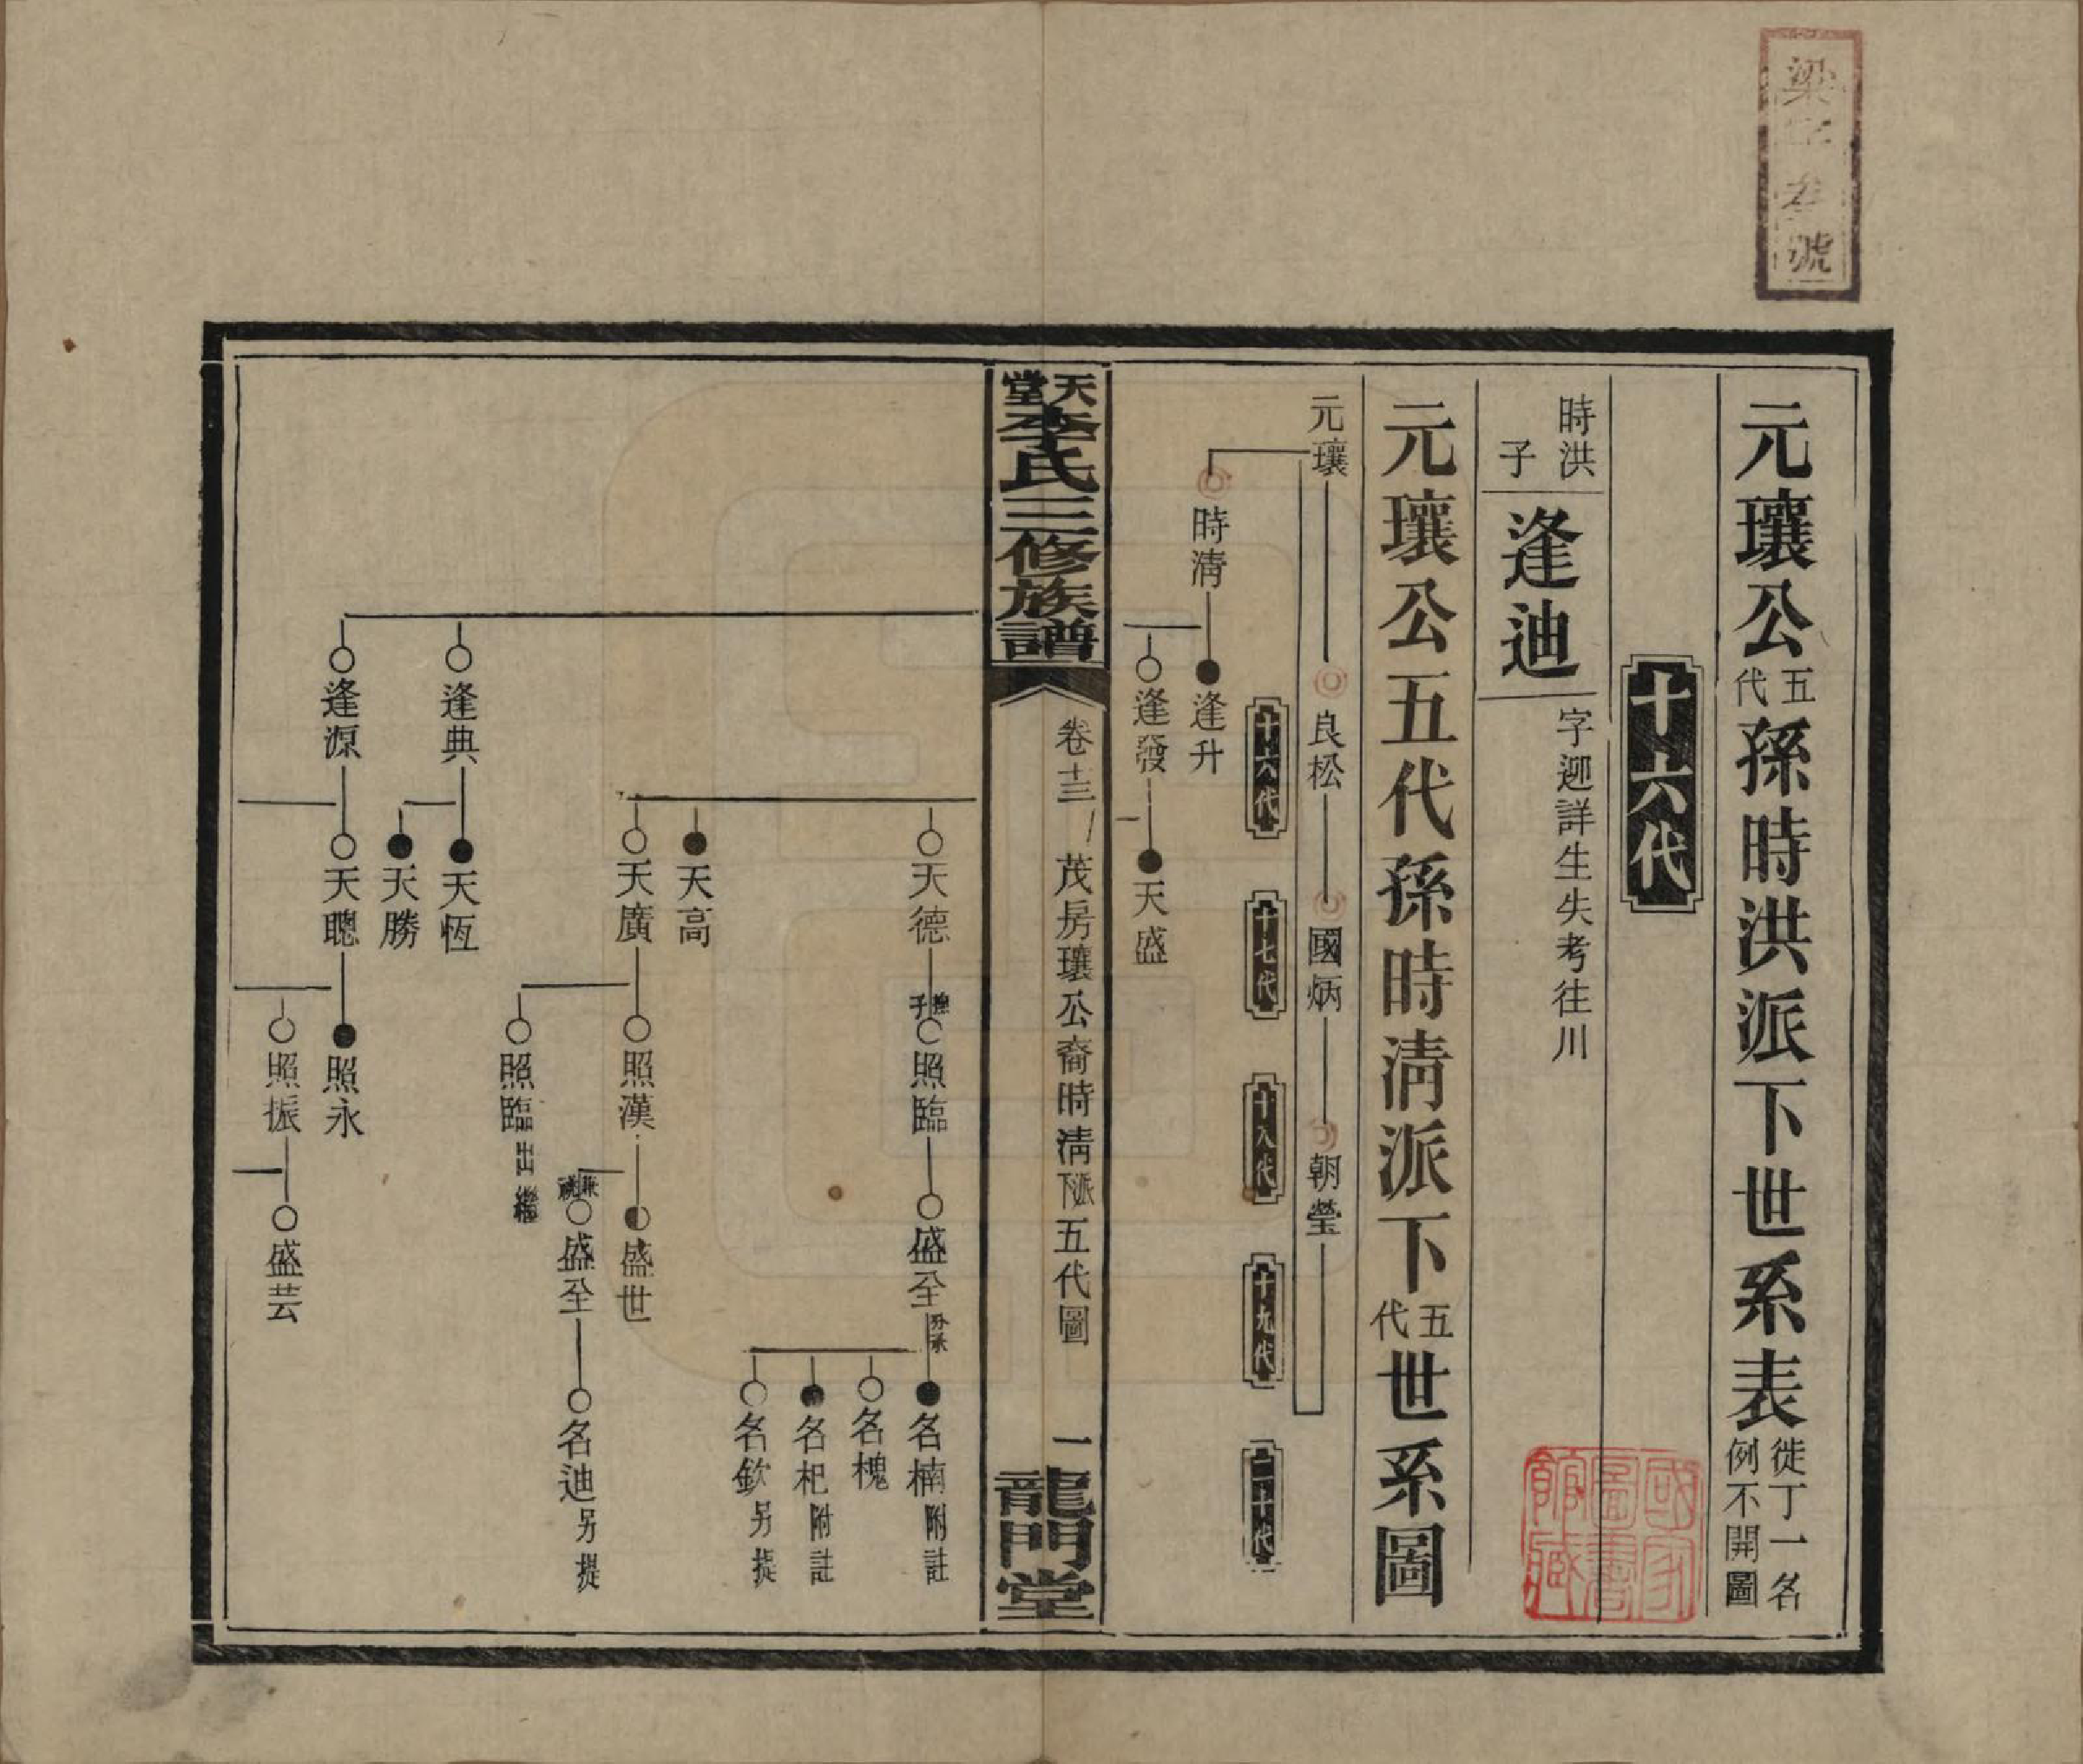 元瓖公五代孫時洪派下世系表徙丁一名例不開圖
十六代
時洪子
逢迪
字迎詳生失考往川
元瓖公五代孫時淸派下五代世系圖
元瓖 良松 國炳 朝瑩
十六代 十七代 十八代 十九代 二十代
時淸 逢升
逢發 天盛
天堂李氏三修族譜 卷十三 茂房瓖公裔時淸派下五代圖 一 龍門堂
天德 撫子 照臨 盛全 分承 名楠 附註
名槐
名杞 附註
名欽 另提
天高
天廣 照漢 盛世
盛全 名迪 另提
照臨 出繼
逢典 天恆
天勝
逢源 天聰 照永
照振 盛芸
國家圖書館藏
梁字 號